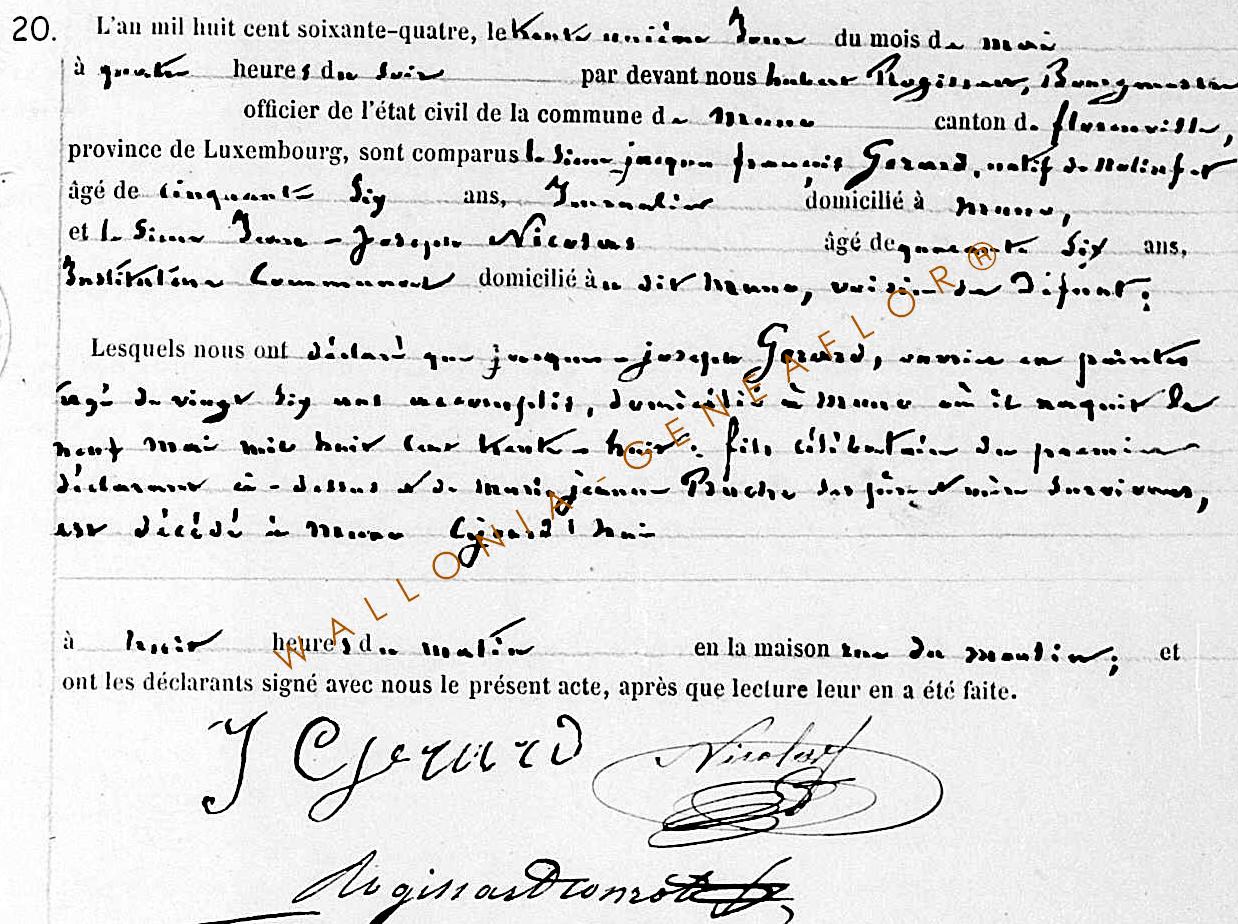 20. L'an mil huit cent soixante-quatre, le trente unième Jour du mois de mai
à quatre heures du soir par devant nous hubert Rogissart, Bourgmestre
officier de l'état civil de la commune de muno canton de florenville,
province de Luxembourg, sont comparus le sieur jacques françois Gerard, natif de
âgé de cinquante six ans, Journalier domicilié à muno,
et le sieur Jean-Joseph Nicolas âgé de quarante six ans,
Instituteur Communal domicilié à dit muno, voisin du Défunt;
Lesquels nous ont déclaré que jacques-joseph Gerard, ouvrier en pointes
âgé de vingt six ans accomplis, domicilié à muno où il naquit le
neuf mai mil huit cent trente-huit, fils célibataire du premier
déclarant ci-dessus et de marie jeanne Buche ses père et mère survivants,
est décédé à muno Cejourd'hui
à huit heures du matin en la maison rue du moulin; et
ont les déclarants signé avec nous le présent acte, après que lecture leur en a été faite.
J Gerard Nicolas
Rogissart
WALLONIA-GENEAFLOR®